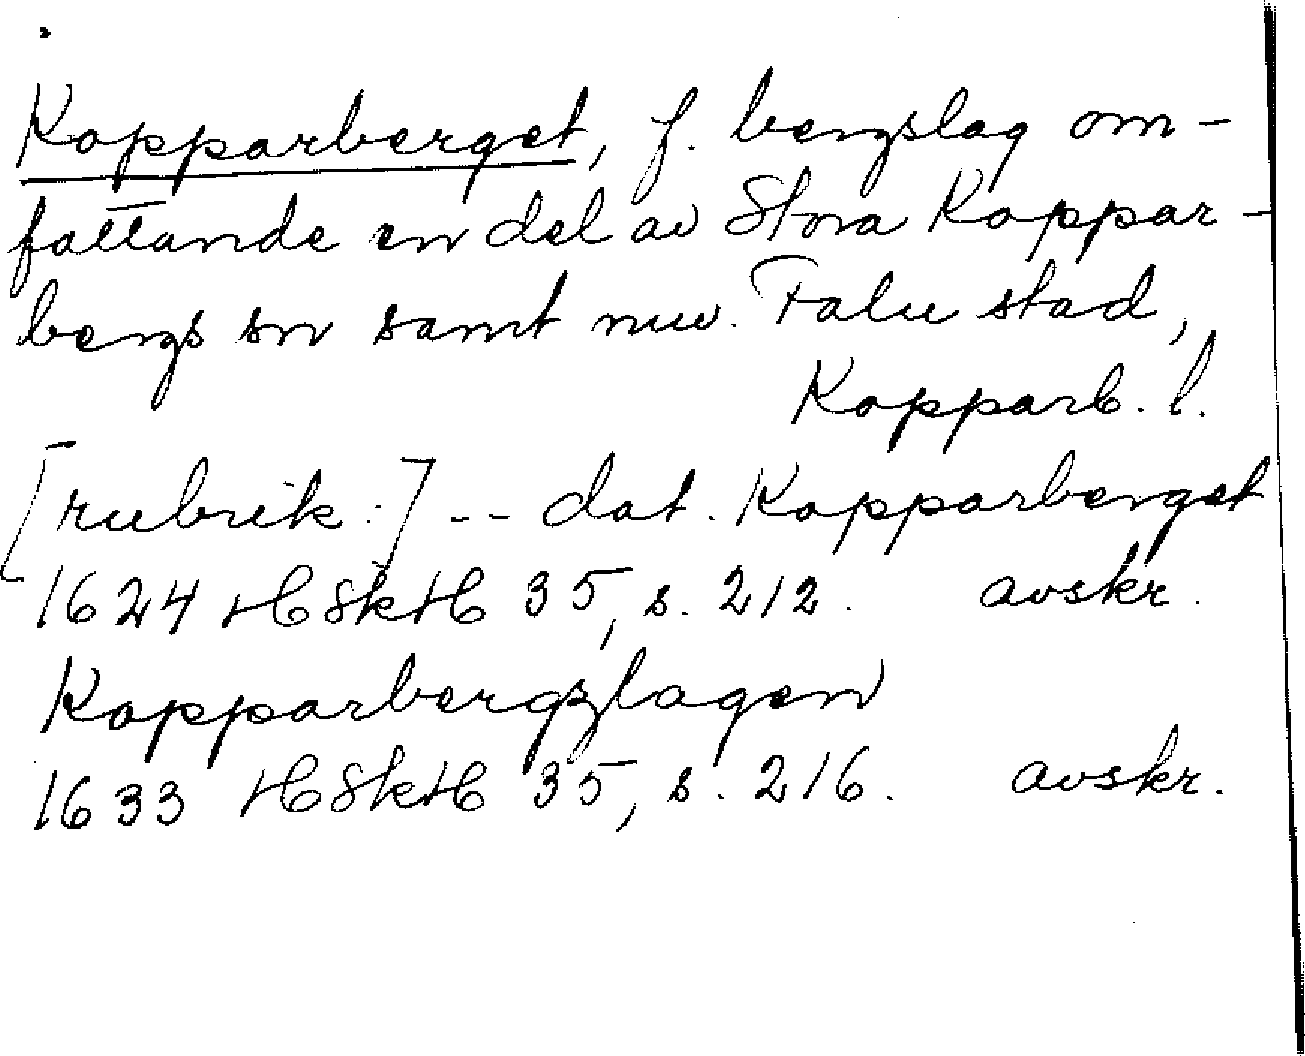 Kopparberget, f. bergslag om-
fattande en del av Stora Koppar-
bergs sn samt nuv. Falu stad,
Kopparb. l.
[rubrik:] -- dat. Kopparberget
1624 HSkH 35, s. 212. avskr.
Kopparbergzlagen
1633 HSkH 35, s. 216. avskr.